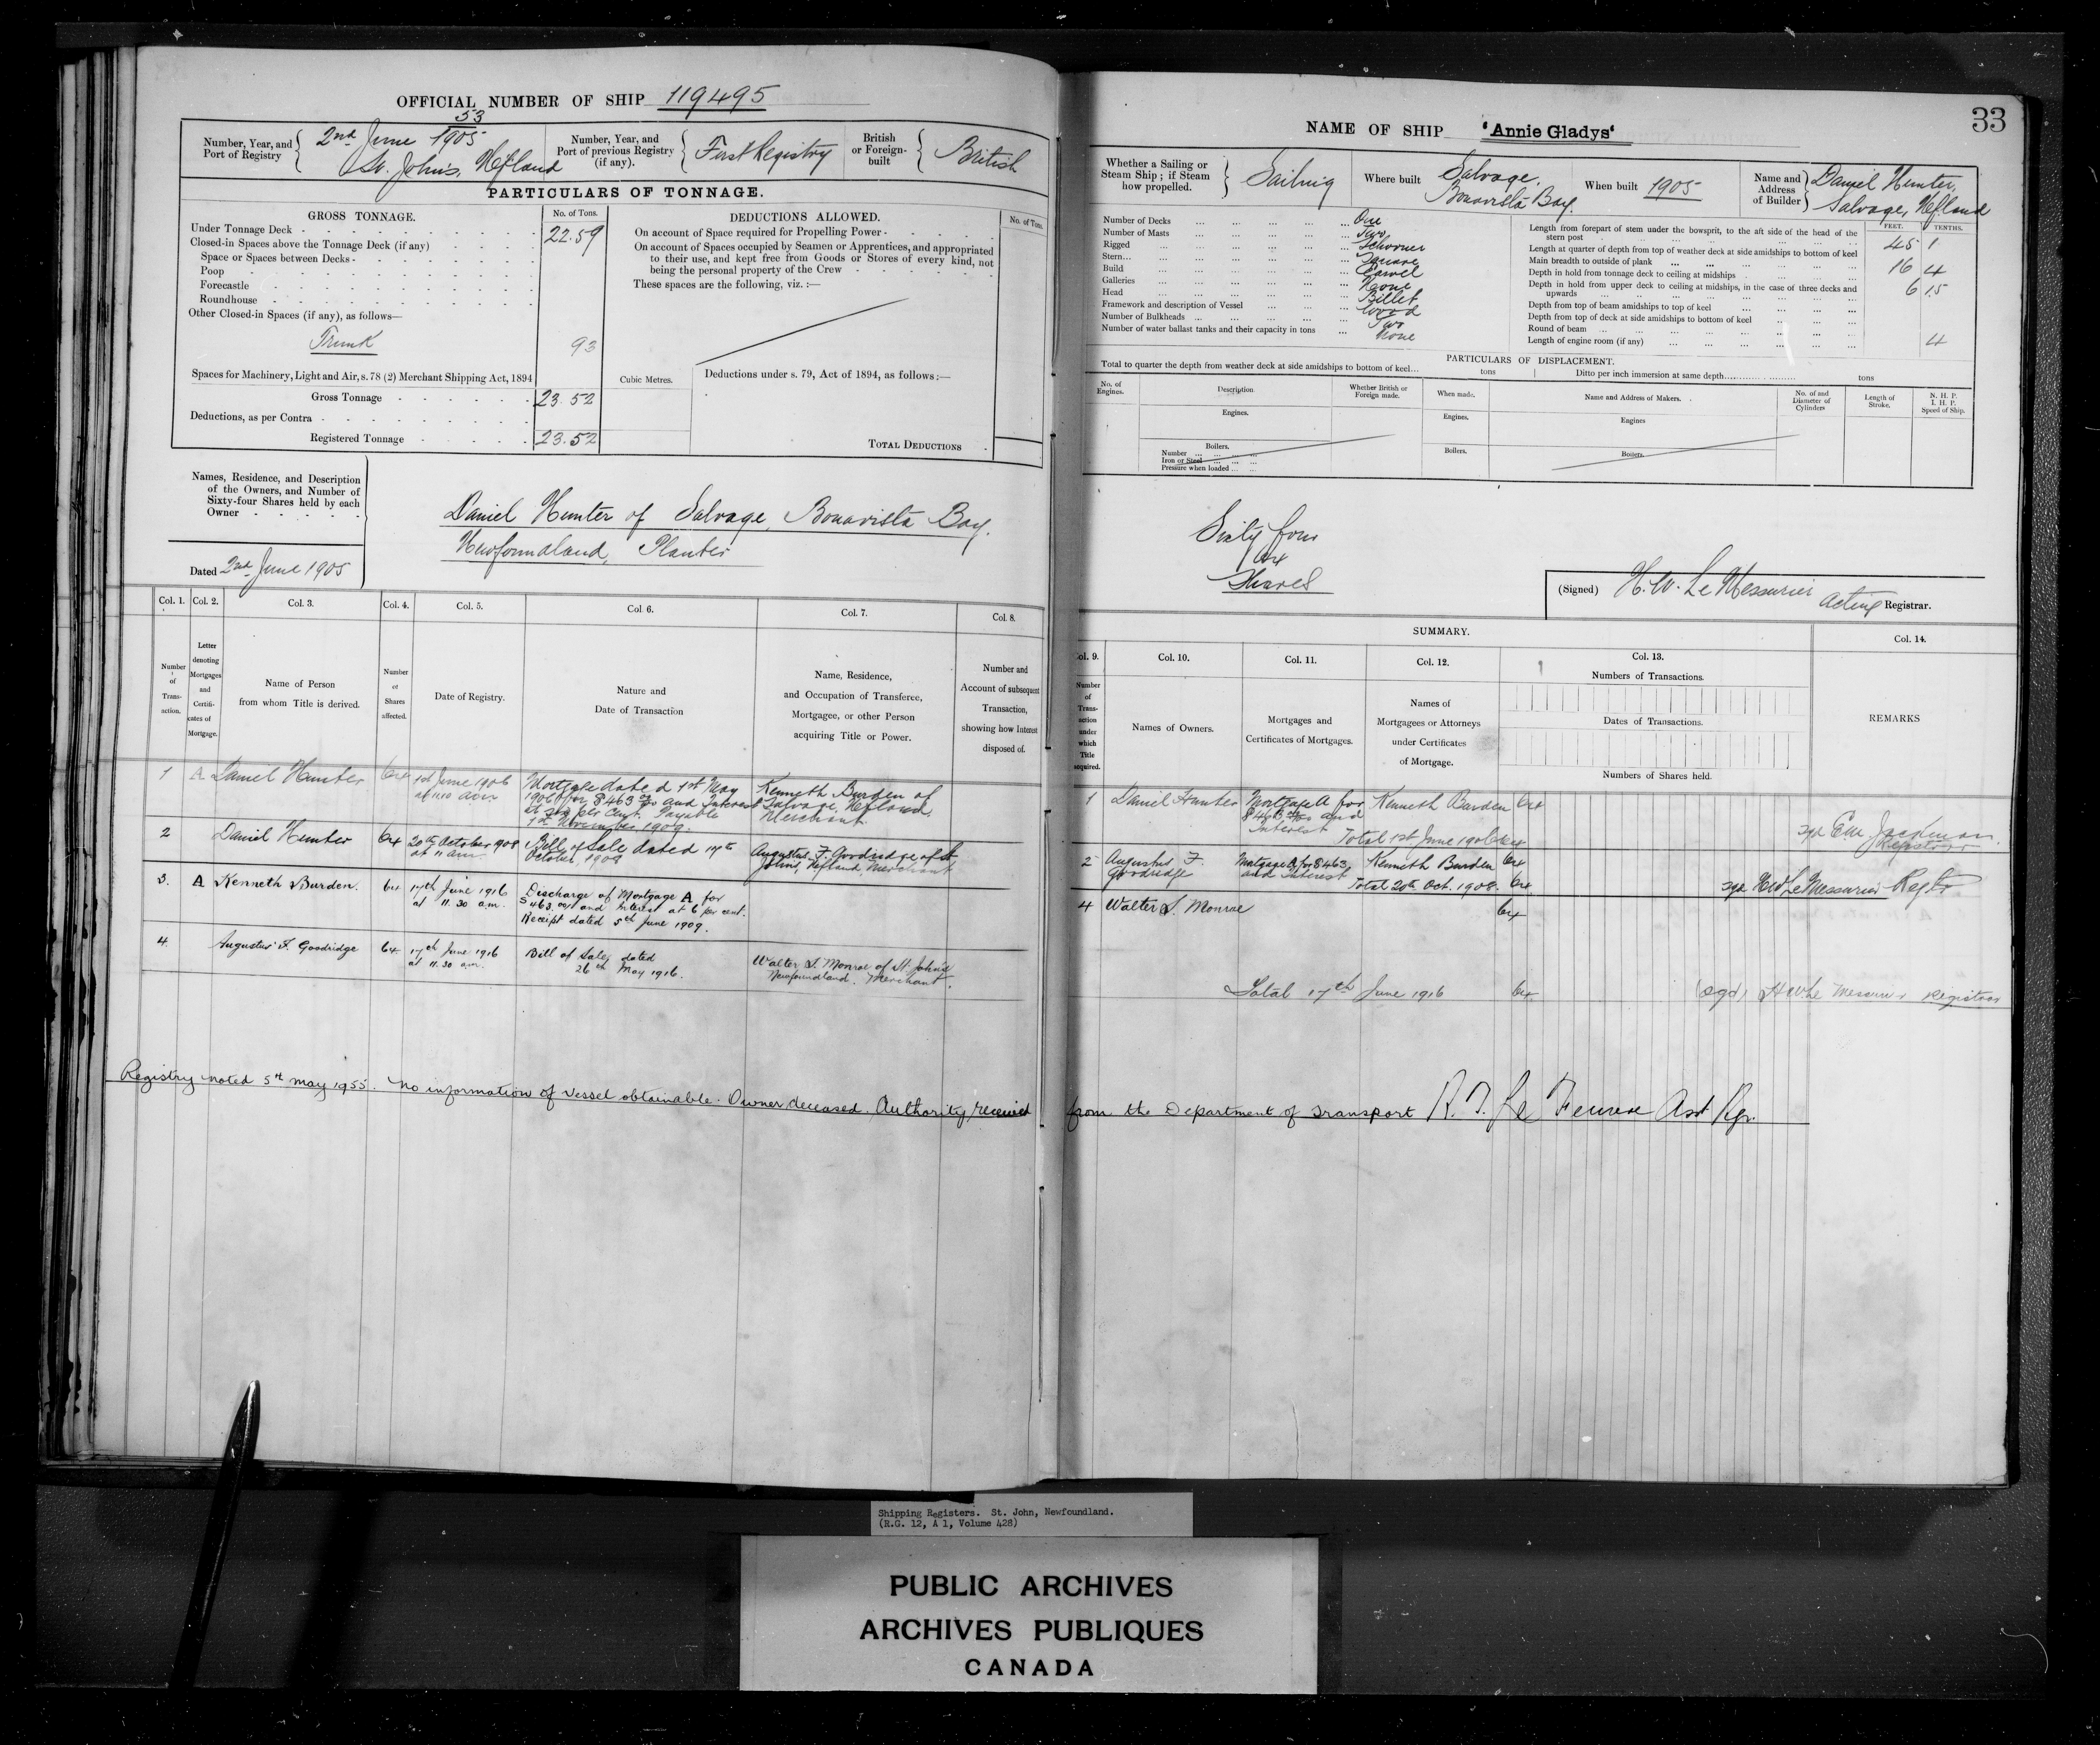 OFFICIAL NUMBER OF SHIP 119495
53
Number, Year, and Port of Registry
2nd June 1905
St. John's, Nfland
Number, Year, and Port of previous Registry (if any).
First Registry
British or Foreign-built
British
PARTICULARS OF TONNAGE.
GROSS TONNAGE.
No. of Tons.
DEDUCTIONS ALLOWED.
No. of Tons.
Under Tonnage Deck 22.59
Closed-in Spaces above the Tonnage Deck (if any)
Space or Spaces between Decks
Poop
Forecastle
Roundhouse
Other Closed-in Spaces (if any), as follows—
Trunk 93
Spaces for Machinery, Light and Air, s. 78 (2) Merchant Shipping Act, 1894
Gross Tonnage 23.52
Deductions, as per Contra
Registered Tonnage 23.52
On account of Space required for Propelling Power
On account of Spaces occupied by Seamen or Apprentices, and appropriated
to their use, and kept free from Goods or Stores of every kind, not
being the personal property of the Crew
These spaces are the following, viz. :—
Cubic Metres.
Deductions under s. 79, Act of 1894, as follows :—
TOTAL DEDUCTIONS
Names, Residence, and Description
of the Owners, and Number of
Sixty-four Shares held by each
Owner
Dated 2nd June 1905
Daniel Hunter of Salvage, Bonavista Bay.
Newfoundland, Planter
Col. 1. Col. 2. Col. 3. Col. 4. Col. 5. Col. 6. Col. 7. Col. 8.
Number of Transaction.
Letter denoting Mortgages and Certificates of Mortgage.
Name of Person from whom Title is derived.
Number of Shares affected.
Date of Registry.
Nature and Date of Transaction
Name, Residence, and Occupation of Transferee, Mortgagee, or other Person acquiring Title or Power.
Number and Account of subsequent Transaction, showing how Interest disposed of.
1 A Daniel Hunter 64 1st June 1906
Mortgage dated 1st May
1906 for $463 00/00 and Interest
at six per Cent. Payable
1st November 1909.
Kenneth Burden of
Salvage, Nfland.
Merchant
2 Daniel Hunter 64 20th October 1908
at 11 am.
Bill of Sale dated 17th
October, 1908
Augustus F. Goodridge of St.
John's, Nfland, Merchant
3. A Kenneth Burden. 64 17th June 1916
at 11.30 a.m.
Discharge of Mortgage A for
$463.00 and Interest at 6 per cent.
Receipt dated 5th June 1909.
4. Augustus F. Goodridge 64 17th June 1916
at 11.30 am.
Bill of Sale, dated
26th May 1916.
Walter S. Monroe of St. John's
Newfoundland. Merchant.
Registry noted 5th May 1955. No information of vessel obtainable. Owner deceased. Authority received
33
NAME OF SHIP 'Annie Gladys'
Whether a Sailing or Steam Ship; if Steam how propelled.
Sailing
Where built
Salvage,
Bonavista Bay.
When built 1905
Name and Address of Builder
Daniel Hunter,
Salvage, Nfland
Number of Decks One
Number of Masts Two
Rigged Schooner
Stern Square
Build Carvel
Galleries None
Head Billet
Framework and description of Vessel Wood
Number of Bulkheads Two
Number of water ballast tanks and their capacity in tons None
FEET. TENTHS.
Length from forepart of stem under the bowsprit, to the aft side of the head of the
stern post 45 1
Length at quarter of depth from top of weather deck at side amidships to bottom of keel
Main breadth to outside of plank 16 4
Depth in hold from tonnage deck to ceiling at midships 6 15
Depth in hold from upper deck to ceiling at midships, in the case of three decks and
upwards
Depth from top of beam amidships to top of keel
Depth from top of deck at side amidships to bottom of keel
Round of beam 4
Length of engine room (if any)
PARTICULARS OF DISPLACEMENT.
Total to quarter the depth from weather deck at side amidships to bottom of keel... tons
Ditto per inch immersion at same depth tons
No. of Engines.
Description.
Whether British or Foreign made.
When made.
Name and Address of Makers.
No. of and Diameter of Cylinders
Length of Stroke.
N. H. P. I. H. P. Speed of Ship.
Engines. Engines. Engines
Boilers. Boilers. Boilers.
Number
Iron or Steel
Pressure when loaded
Sixty four
64
Shares
(Signed) H. W. Le Messurier Acting Registrar.
SUMMARY.
Col. 9. Col. 10. Col. 11. Col. 12. Col. 13. Col. 14.
Number of Transaction under which Title acquired.
Names of Owners.
Mortgages and Certificates of Mortgages.
Names of Mortgagees or Attorneys under Certificates of Mortgage.
Numbers of Transactions.
Dates of Transactions.
Numbers of Shares held.
REMARKS
1 Daniel Hunter Mortgage A for Kenneth Burden 64
$463 and
Interest
Total 1st June 1906 64
sgd E.M. Jackman
Registrar
2 Augustus F. Goodridge
Mortgage A for $463 and Interest
Kenneth Burden 64
Total 20th Oct. 1908. 64
sgd HW Le Messurier Regtr
4 Walter S. Monroe 64
Total 17th June 1916 64
(sgd) HW Le Messurier Registrar
from the Department of Transport
Asst Rgr.
Shipping Registers. St. John, Newfoundland.
(R.G. 12, A 1, Volume 428)
PUBLIC ARCHIVES
ARCHIVES PUBLIQUES
CANADA